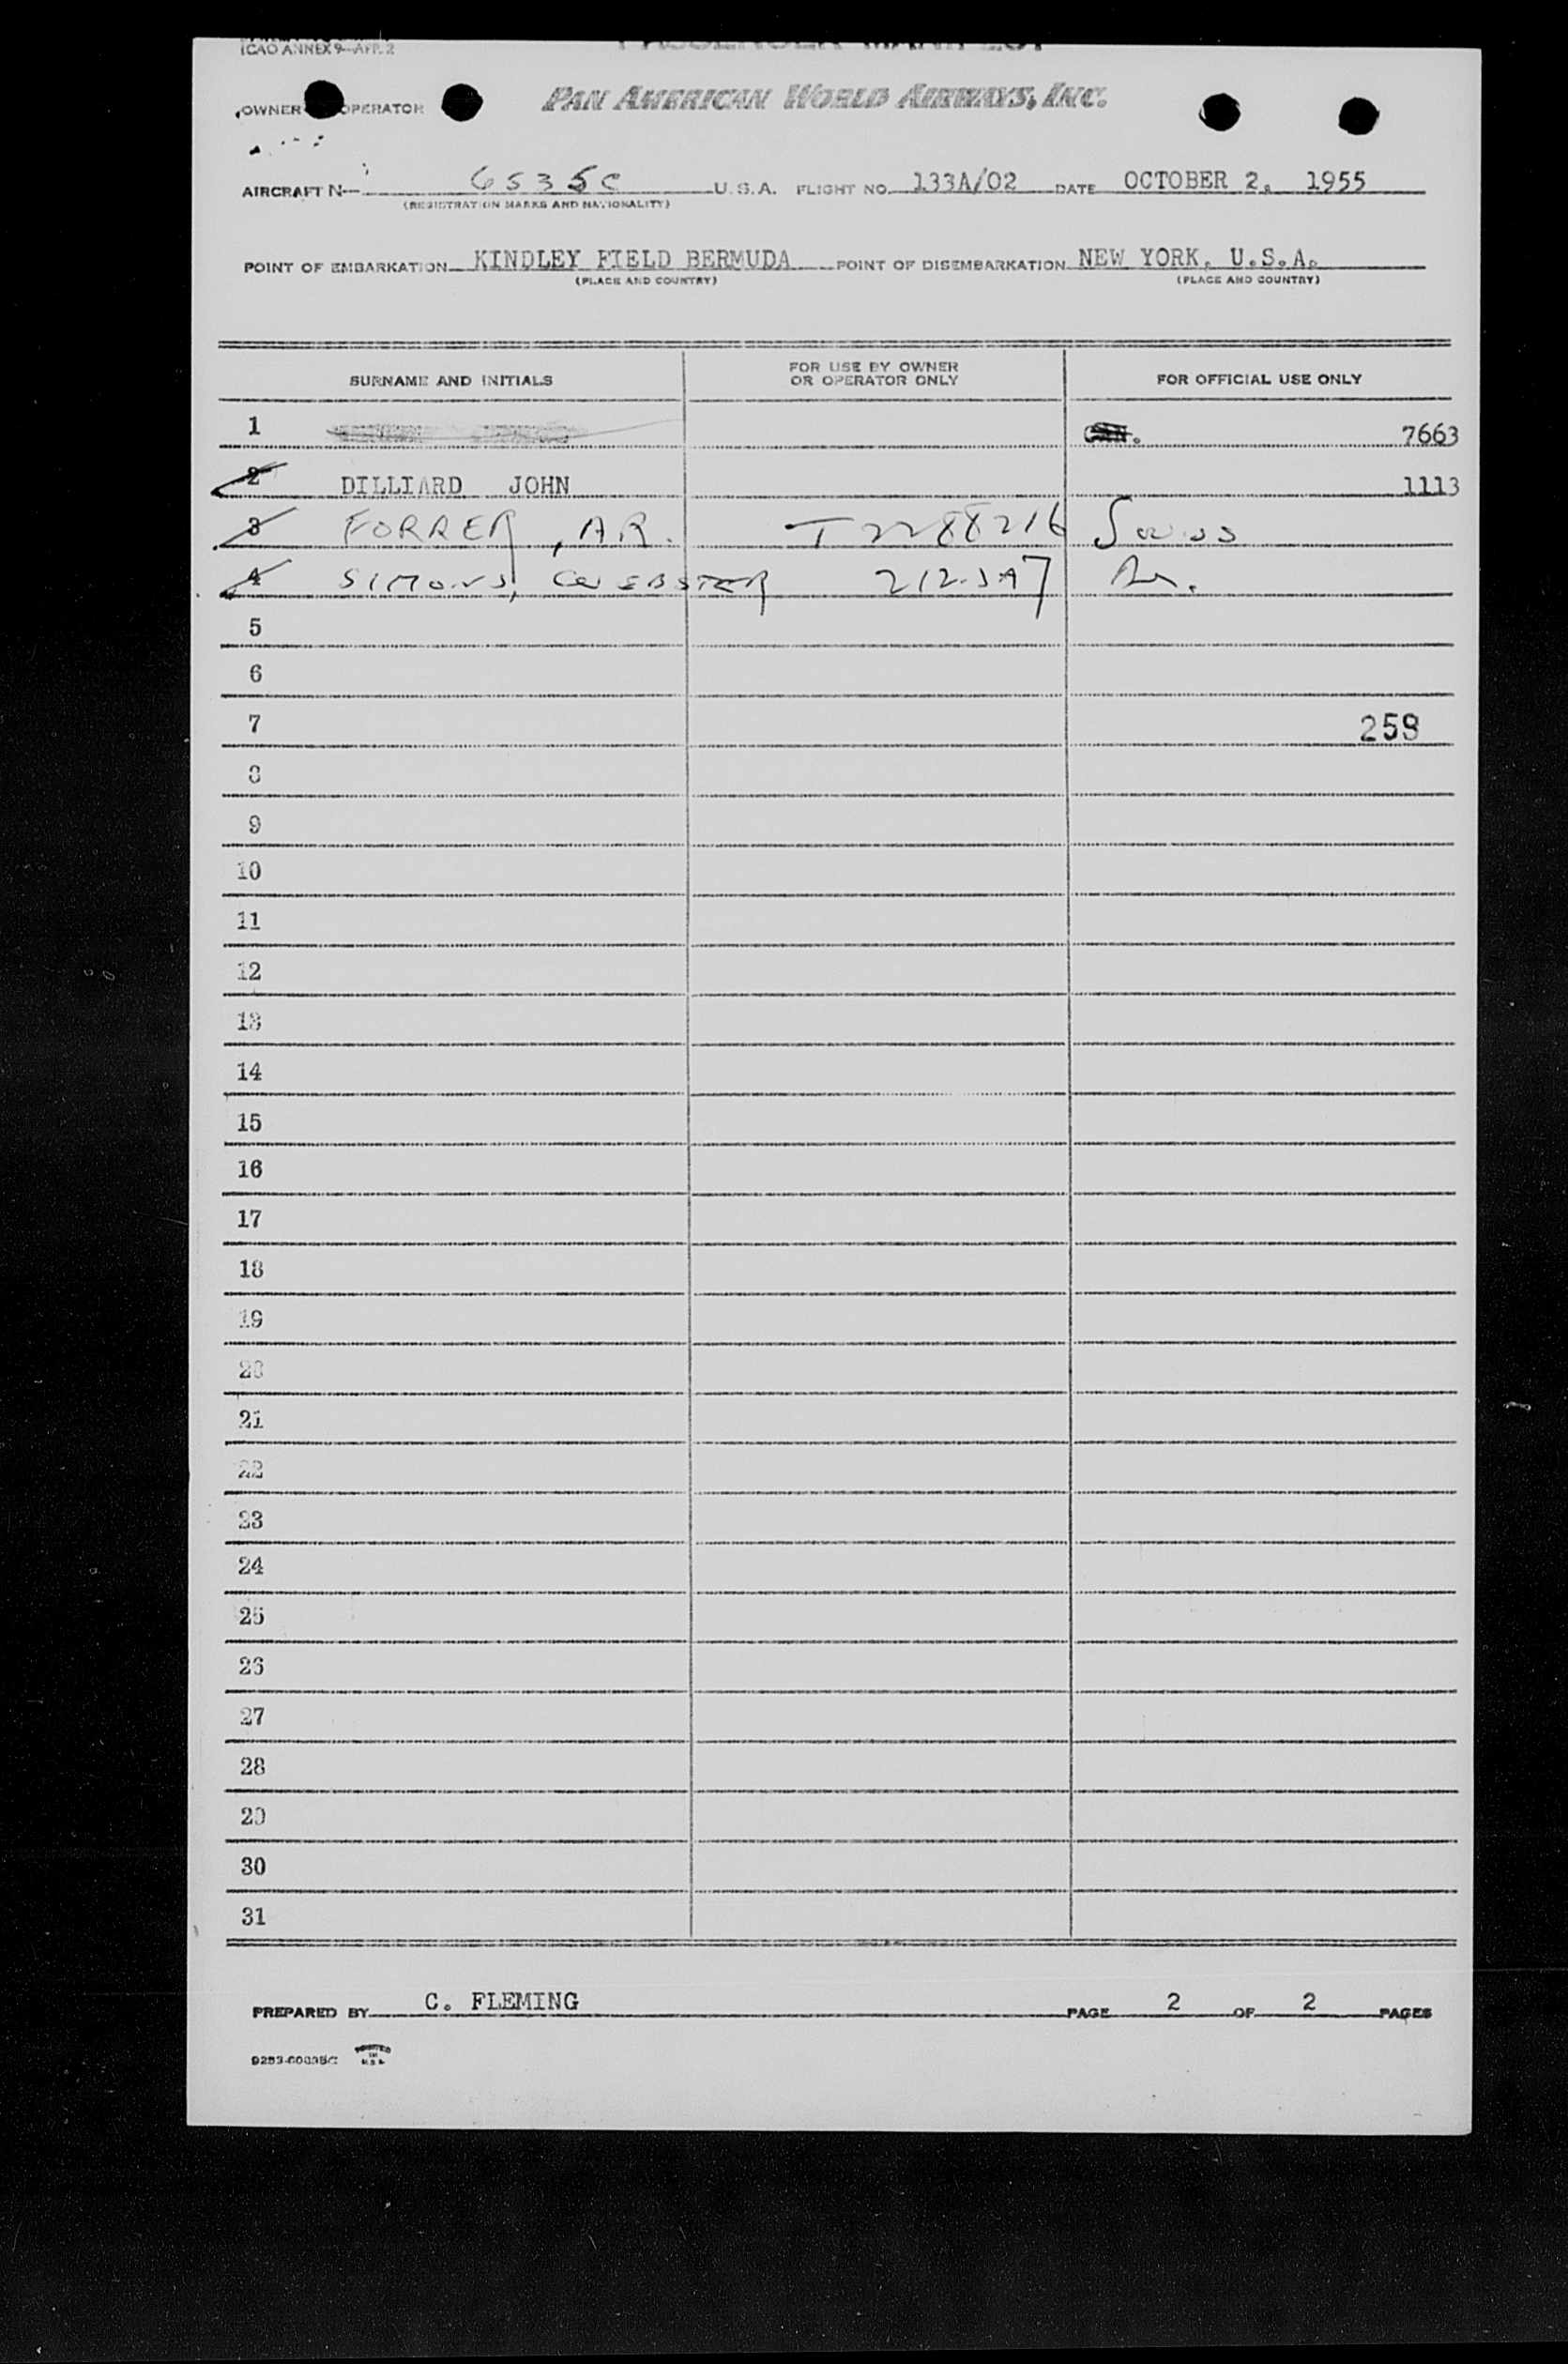 ICAO ANNEX 9—APP. 2
PASSENGER MANIFEST
OWNER OPERATOR PAN AMERICAN WORLD AIRWAYS, INC.
AIRCRAFT N— 6535C U.S.A. FLIGHT NO. 133A/02 DATE OCTOBER 2, 1955
(REGISTRATION MARKS AND NATIONALITY)
POINT OF EMBARKATION KINDLEY FIELD BERMUDA POINT OF DISEMBARKATION NEW YORK, U.S.A.
(PLACE AND COUNTRY) (PLACE AND COUNTRY)
SURNAME AND INITIALS FOR USE BY OWNER OR OPERATOR ONLY FOR OFFICIAL USE ONLY
1 7663
2 DILLIARD JOHN 1113
3 FORRER, A R. T 2288216 Swiss
4 SIMONS, WEBSTER
5
6
7 258
8
9
10
11
12
13
14
15
16
17
18
19
20
21
22
23
24
25
26
27
28
29
30
31
PREPARED BY C. FLEMING PAGE 2 OF 2 PAGES
PRINTED IN U.S.A.